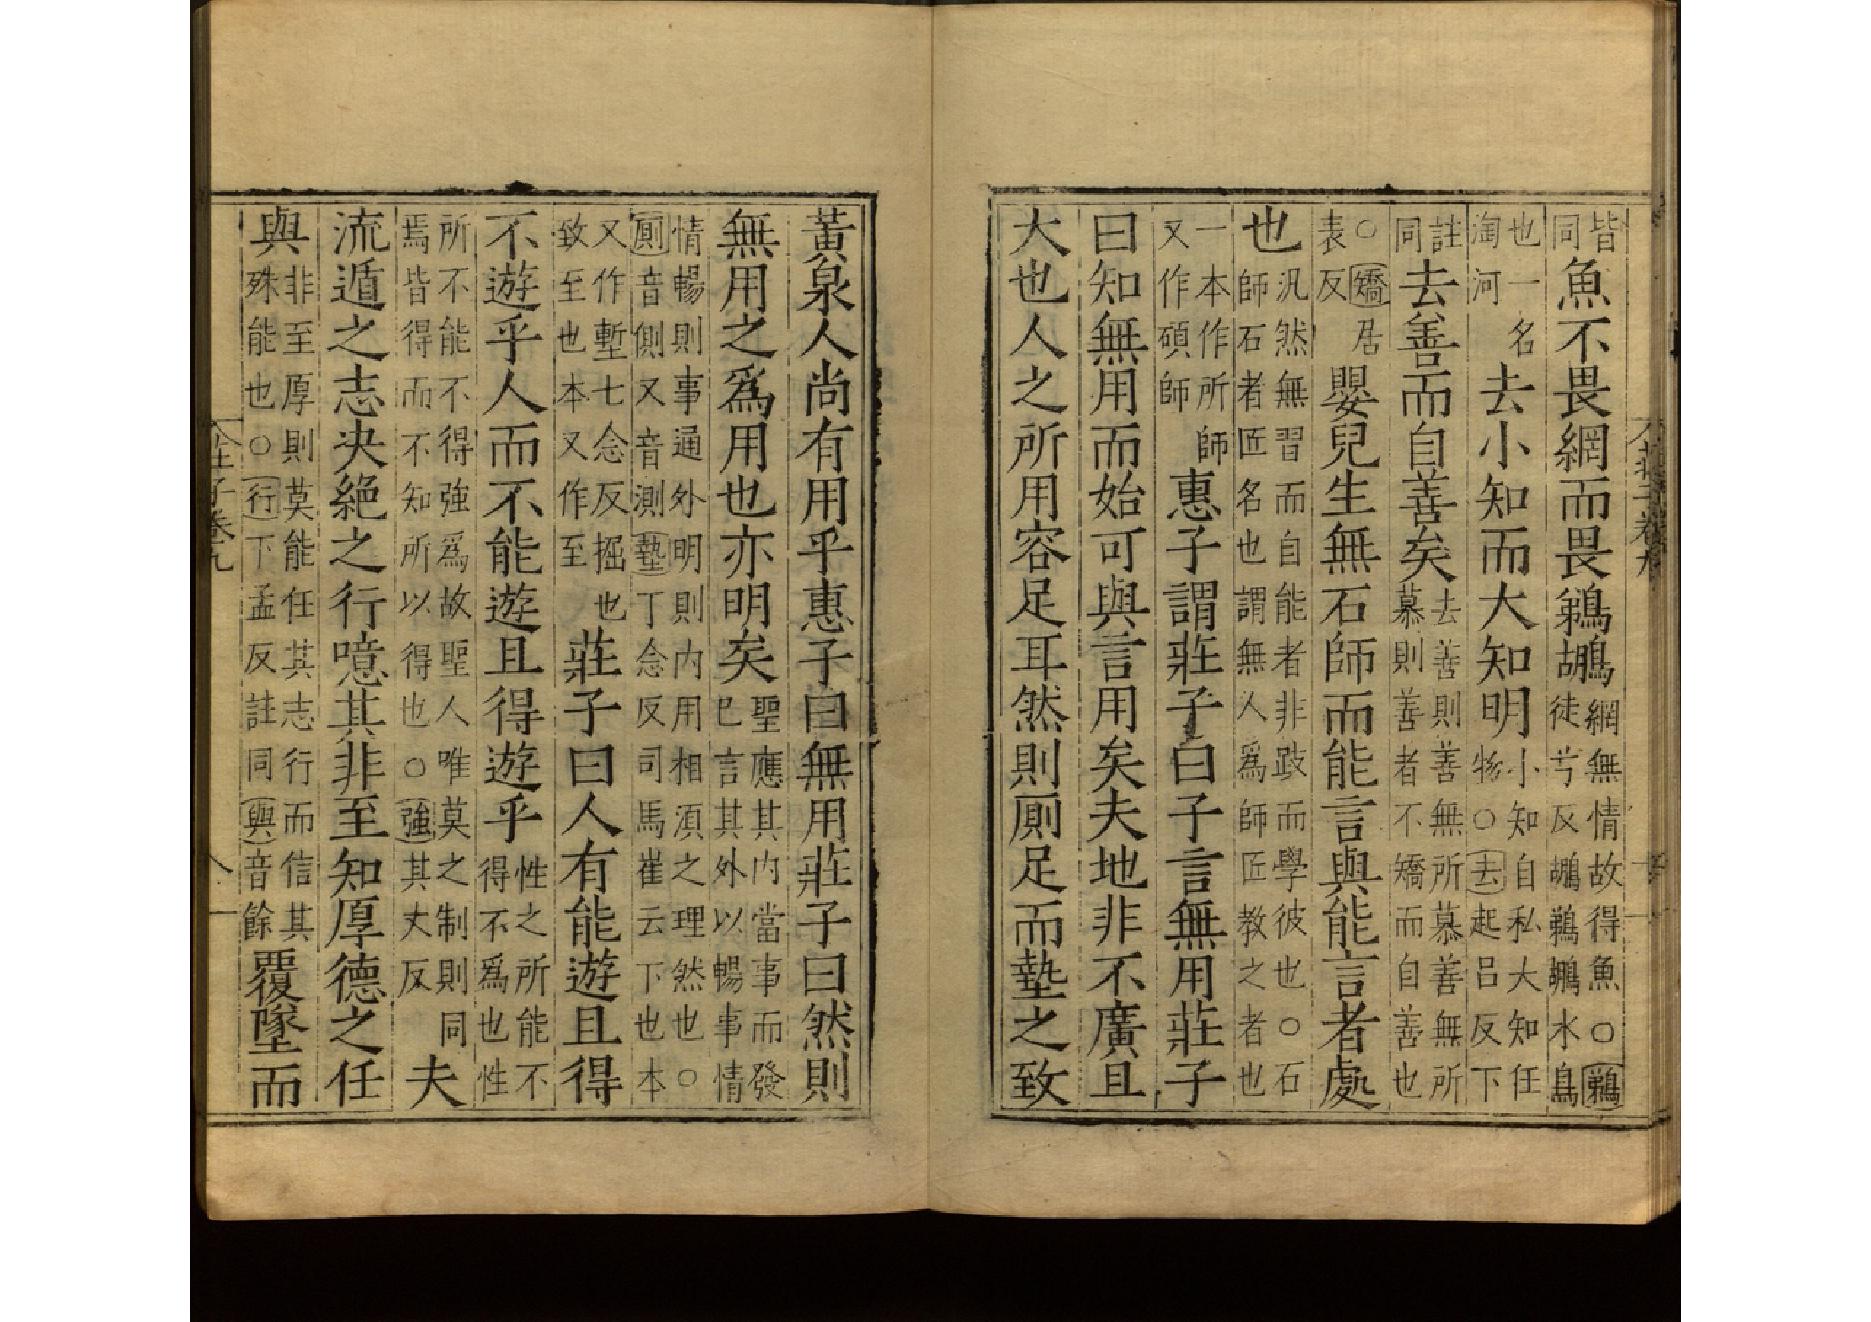 皆同魚不畏網而畏鵜鶘網無情故得魚○鵜徒兮反鶘鵜鶘水鳥
也一名淘河去小知而大知明小知自私大知任物○去起呂反下
註同去善而自善矣去善則善無所慕善無所慕則善者不矯而自善也
○矯居表反嬰兒生無石師而能言與能言者處
也汎然無習而自能者非跂而學彼也○石師石者匠名也謂無人爲師匠教之者也
一本作所師又作碩師惠子謂莊子曰子言無用莊子
曰知無用而始可與言用矣夫地非不廣且
大也人之所用容足耳然則廁足而墊之致
黃泉人尚有用乎惠子曰無用莊子曰然則
無用之爲用也亦明矣聖應其内當事而發已言其外以暢事情
情暢則事通外明則内用相湏之理然也○廁音側又音測墊丁念反司馬崔云下也本
又作塹七念反掘也致至也本又作至莊子曰人有能遊且得
不遊乎人而不能遊且得遊乎性之所能不得不爲也性
所不能不得強爲故聖人唯莫之制則同焉皆得而不知所以得也○強其丈反夫
流遁之志决絶之行噫其非至知厚德之任
與非至厚則莫能任其志行而信其殊能也○行下孟反註同與音餘覆墜而